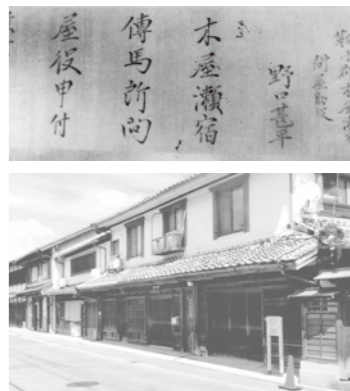 野口甚平
木屋瀬宿
傳馬所問
屋役申付